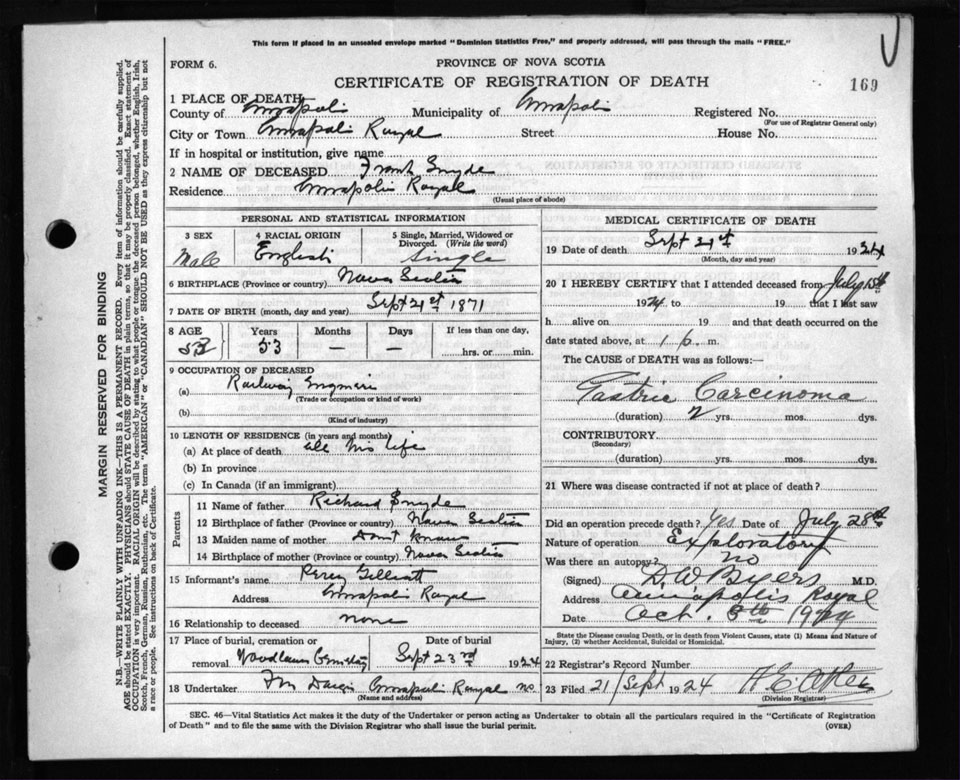 This form if placed in an unsealed envelope marked "Dominion Statistics Free," and properly addressed, will pass through the mails "FREE."
FORM 6.
PROVINCE OF NOVA SCOTIA
CERTIFICATE OF REGISTRATION OF DEATH
169
1 PLACE OF DEATH
County of Annapolis Municipality of Annapolis Registered No.
(For use of Registrar General only)
City or Town Annapolis Royal Street House No.
If in hospital or institution, give name
2 NAME OF DECEASED Frank Snyde
Residence Annapolis Royal
(Usual place of abode)
MARGIN RESERVED FOR BINDING
N.B.—WRITE PLAINLY WITH UNFADING INK—THIS IS A PERMANENT RECORD. Every item of information should be carefully supplied.
AGE should be stated EXACTLY. PHYSICIANS should STATE CAUSE OF DEATH in plain terms, so that it may be properly classified. Exact statement of
OCCUPATION is very important. RACIAL ORIGIN will be described by stating to what people or tongue the deceased person belonged, whether English, Irish,
Scotch, French, German, Russian, Ruthenian, etc. The terms "AMERICAN" or "CANADIAN" SHOULD NOT BE USED as they express citizenship but not
a race or people. See instructions on back of Certificate.
PERSONAL AND STATISTICAL INFORMATION
3 SEX
Male
4 RACIAL ORIGIN
English
5 Single, Married, Widowed or
Divorced. (Write the word)
Single
6 BIRTHPLACE (Province or country) Nova Scotia
7 DATE OF BIRTH (month, day and year) Sept 21st 1871
8 AGE Years Months Days If less than one day,
53 53 — — hrs. or min.
9 OCCUPATION OF DECEASED
(a) Railway Engineer
(Trade or occupation or kind of work)
(b)
(Kind of industry)
10 LENGTH OF RESIDENCE (in years and months)
(a) At place of death all his life
(b) In province
(c) In Canada (if an immigrant)
Parents
11 Name of father Richard Snyde
12 Birthplace of father (Province or country) Nova Scotia
13 Maiden name of mother Dont know
14 Birthplace of mother (Province or country) Nova Scotia
15 Informant's name Percy Gilliatt
Address Annapolis Royal
16 Relationship to deceased none
17 Place of burial, cremation or
removal Woodlawn Cemetery
Date of burial
Sept 23rd 1924
18 Undertaker Annapolis Royal NS
(Name and address)
MEDICAL CERTIFICATE OF DEATH
19 Date of death Sept 21st 1924
(Month, day and year)
20 I HEREBY CERTIFY that I attended deceased from July 15th
1924 to 19 that I last saw
h alive on 19 and that death occurred on the
date stated above, at 1 p. m.
The CAUSE OF DEATH was as follows:
Gastric Carcinoma
(duration) 2 yrs. mos. dys.
CONTRIBUTORY
(Secondary)
(duration) yrs. mos. dys.
21 Where was disease contracted if not at place of death?
Did an operation precede death? Yes Date of July 28th
Nature of operation Exploratory
Was there an autopsy? no
(Signed) D.W Byers M.D.
Address Annapolis Royal
Date Oct. 8th 1924
State the Disease causing Death, or in death from Violent Causes, state (1) Means and Nature of
Injury, (2) whether Accidental, Suicidal or Homicidal.
22 Registrar's Record Number
23 Filed 21/Sept 1924
(Division Registrar)
SEC. 46—Vital Statistics Act makes it the duty of the Undertaker or person acting as Undertaker to obtain all the particulars required in the "Certificate of Registration
of Death" and to file the same with the Division Registrar who shall issue the burial permit.
(OVER)